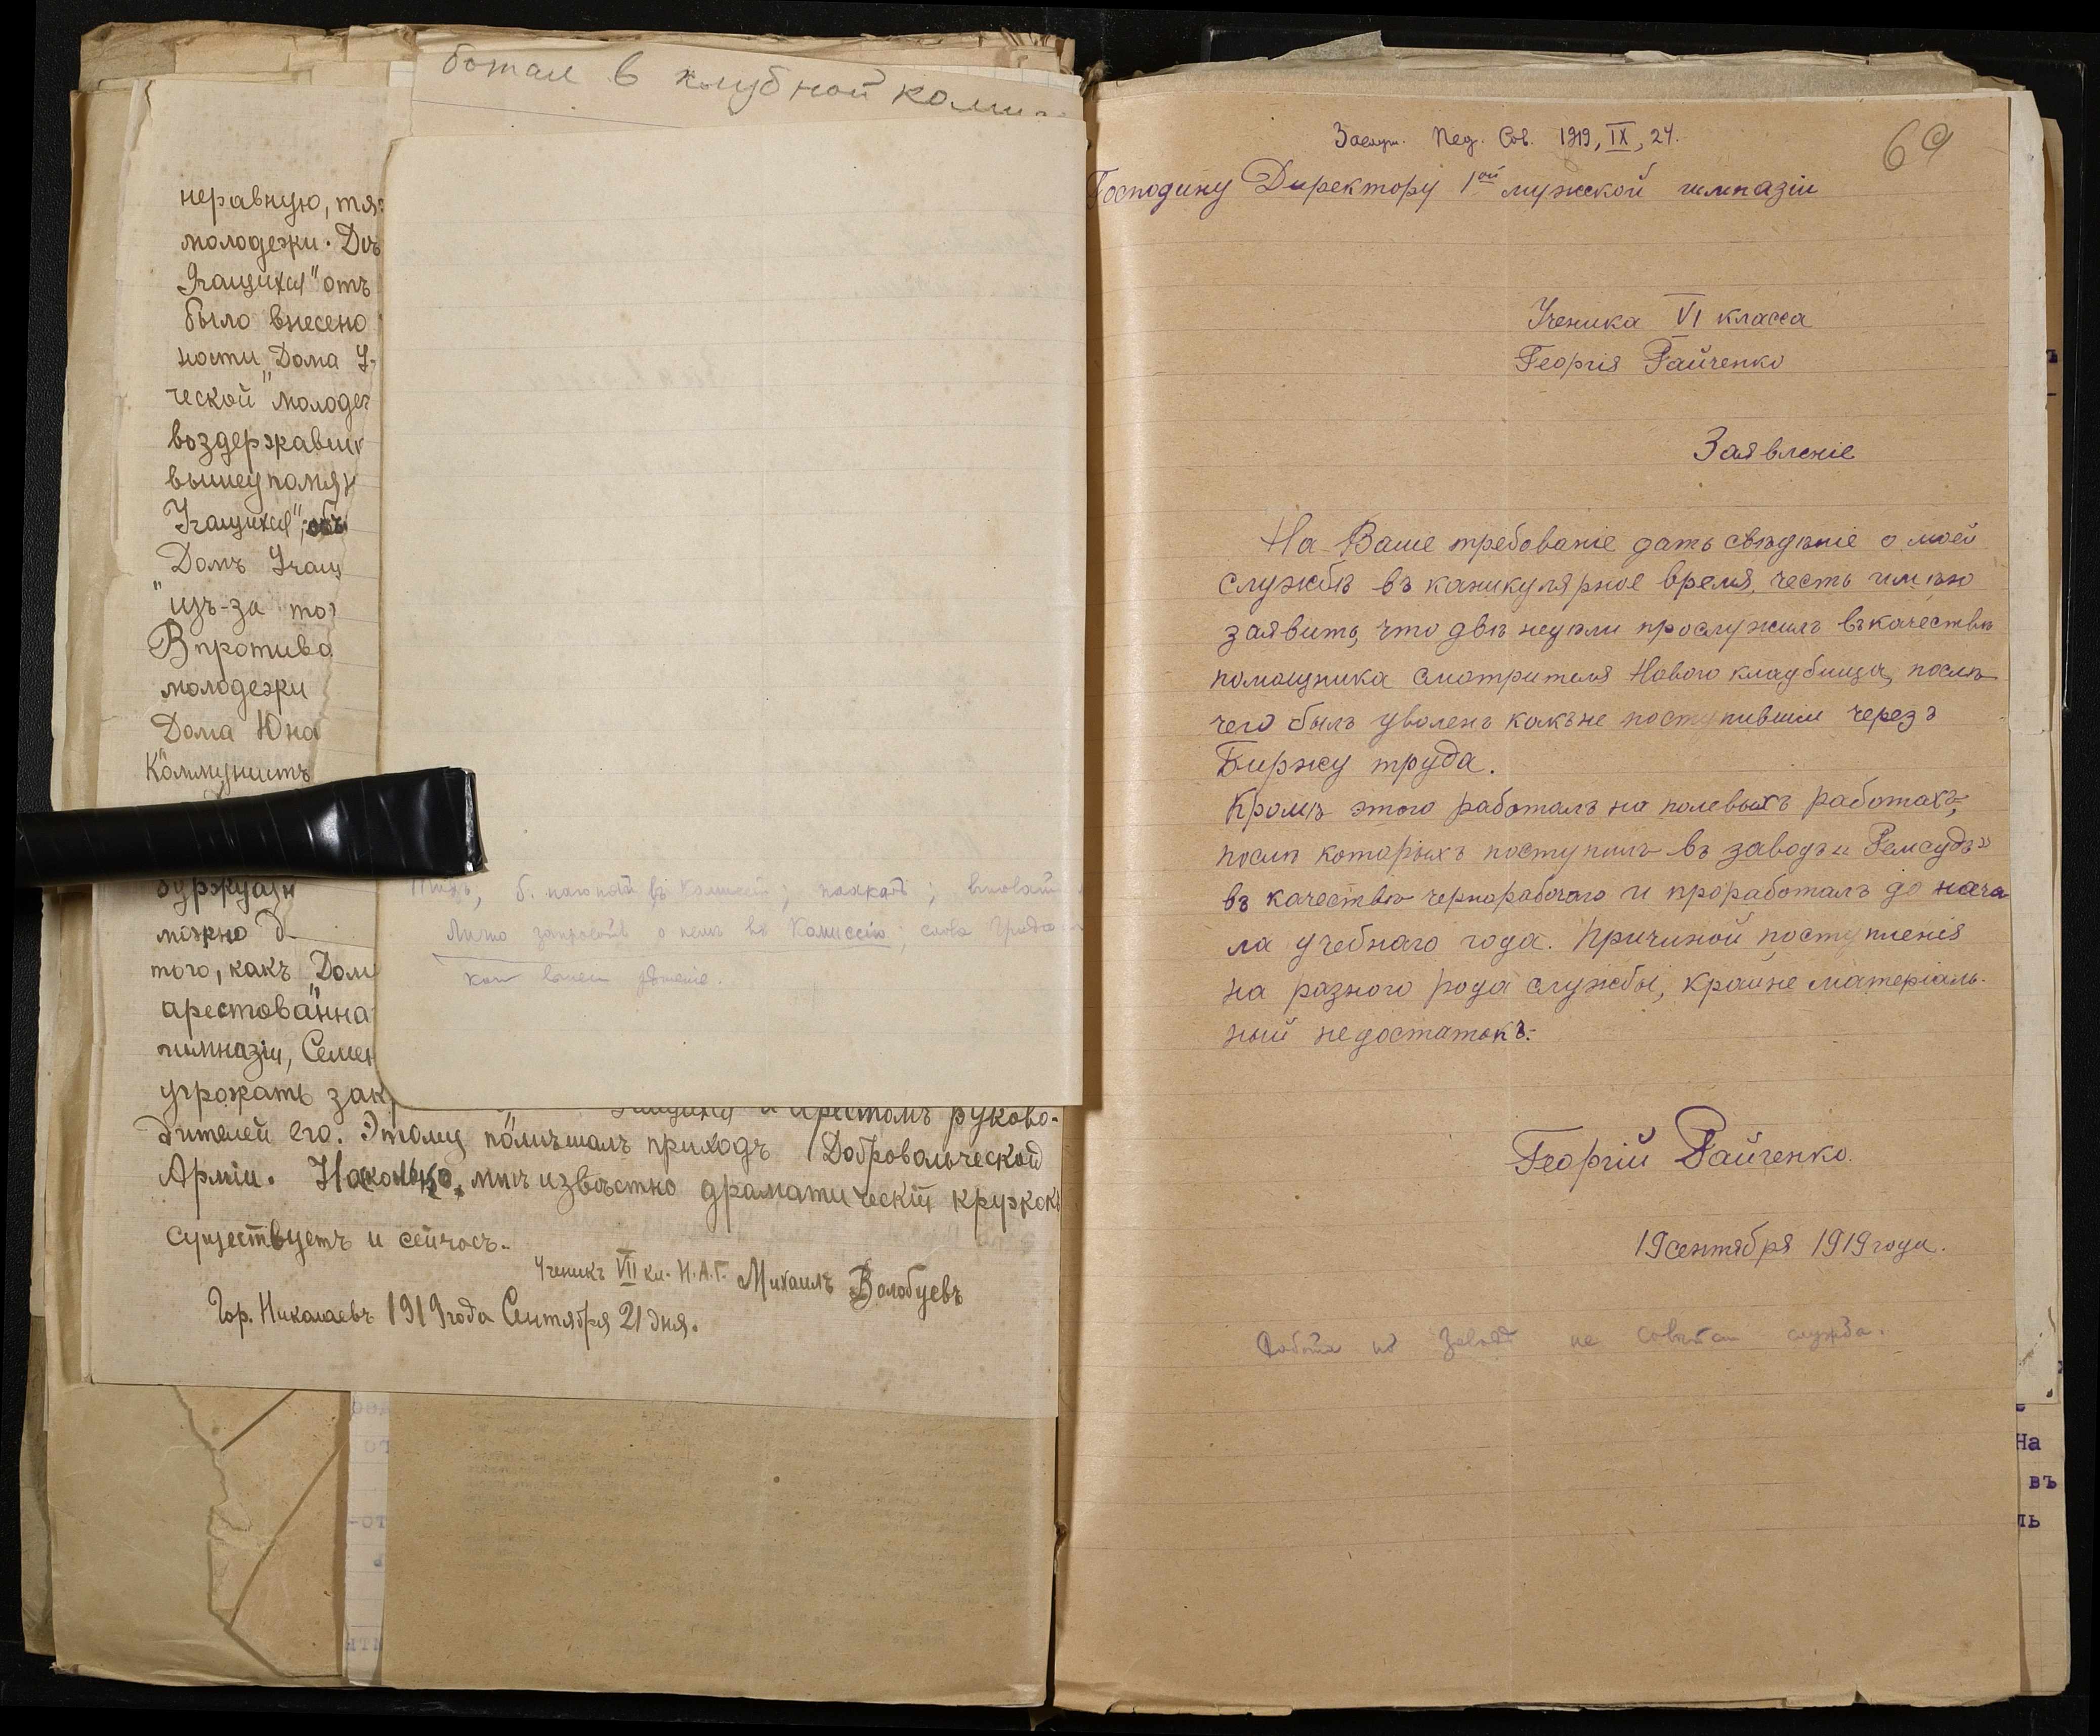 ботал в клубной коми
неравную, тя
молодежи. До
Учащихся" отъ
было внесено
ности „Дома У
ческой молоде
воздержавши
вышеупомян
Учащихся",
Домъ Учащ
изъ-за тог
В противо
молодежи
Дома Юна
Коммунистъ
буржуазн
можно
того, какъ „Дом
арестована
гимназіи, Семен
угрожать зак
и арестомъ руково-
дителей его. Этому помѣшалъ приходъ Добровольческой
Арміи. Насколько мнѣ извѣстно драматическій кружокъ
существуетъ и сейчасъ.
Ученикъ VII кл. Н.А.Г. Михаилъ Волобуевъ
Гор. Николаевъ 1919 года Сентября 21 дня.
Лично о немъ въ Комиссію; слова
Засѣд. Пед. Сов. 1919, IX, 24.
69
Господину Директору 1ой мужской гимназіи
Ученика VI класса
Георгія Райченко
Заявленіе
На Ваше требованіе дать свѣдѣніе о моей
службѣ въ каникулярное время, честь имѣю
заявить, что двѣ недѣли прослужилъ въ качествѣ
помощника смотрителя Нового кладбища, послѣ
чего былъ уволенъ какъ не поступившій черезъ
Биржу труда.
Кромѣ этого работалъ на полевыхъ работахъ,
послѣ которыхъ поступилъ въ заводъ „Ремсудъ"
въ качествѣ чернорабочаго и проработалъ до нача
ла учебнаго года. Причиной поступленія
на разного рода службы, крайне матеріаль-
ный недостатокъ.
Георгій Райченко.
19 сентября 1919 года.
Работа на заводѣ не служба.
На
въ
ль